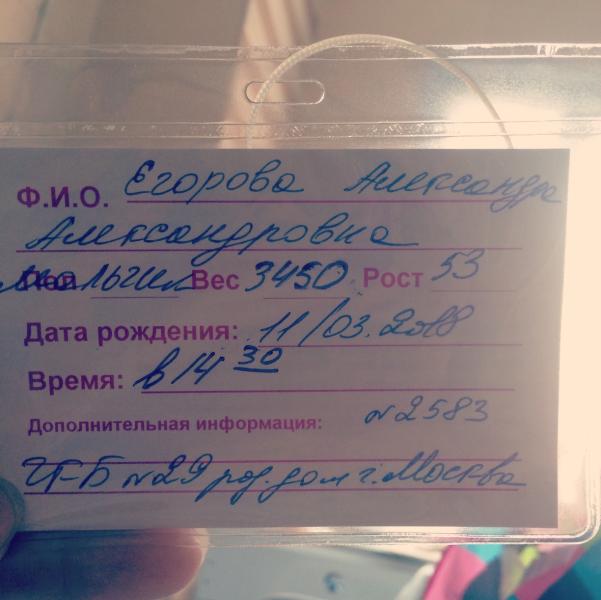 Ф.И.О. Егорова Александра
Александровна
Пол мальчик Вес 3450 Рост 53
Дата рождения: 11/03.2018
Время: в 14 30
Дополнительная информация: №2583
№29 род. дом г. Москва